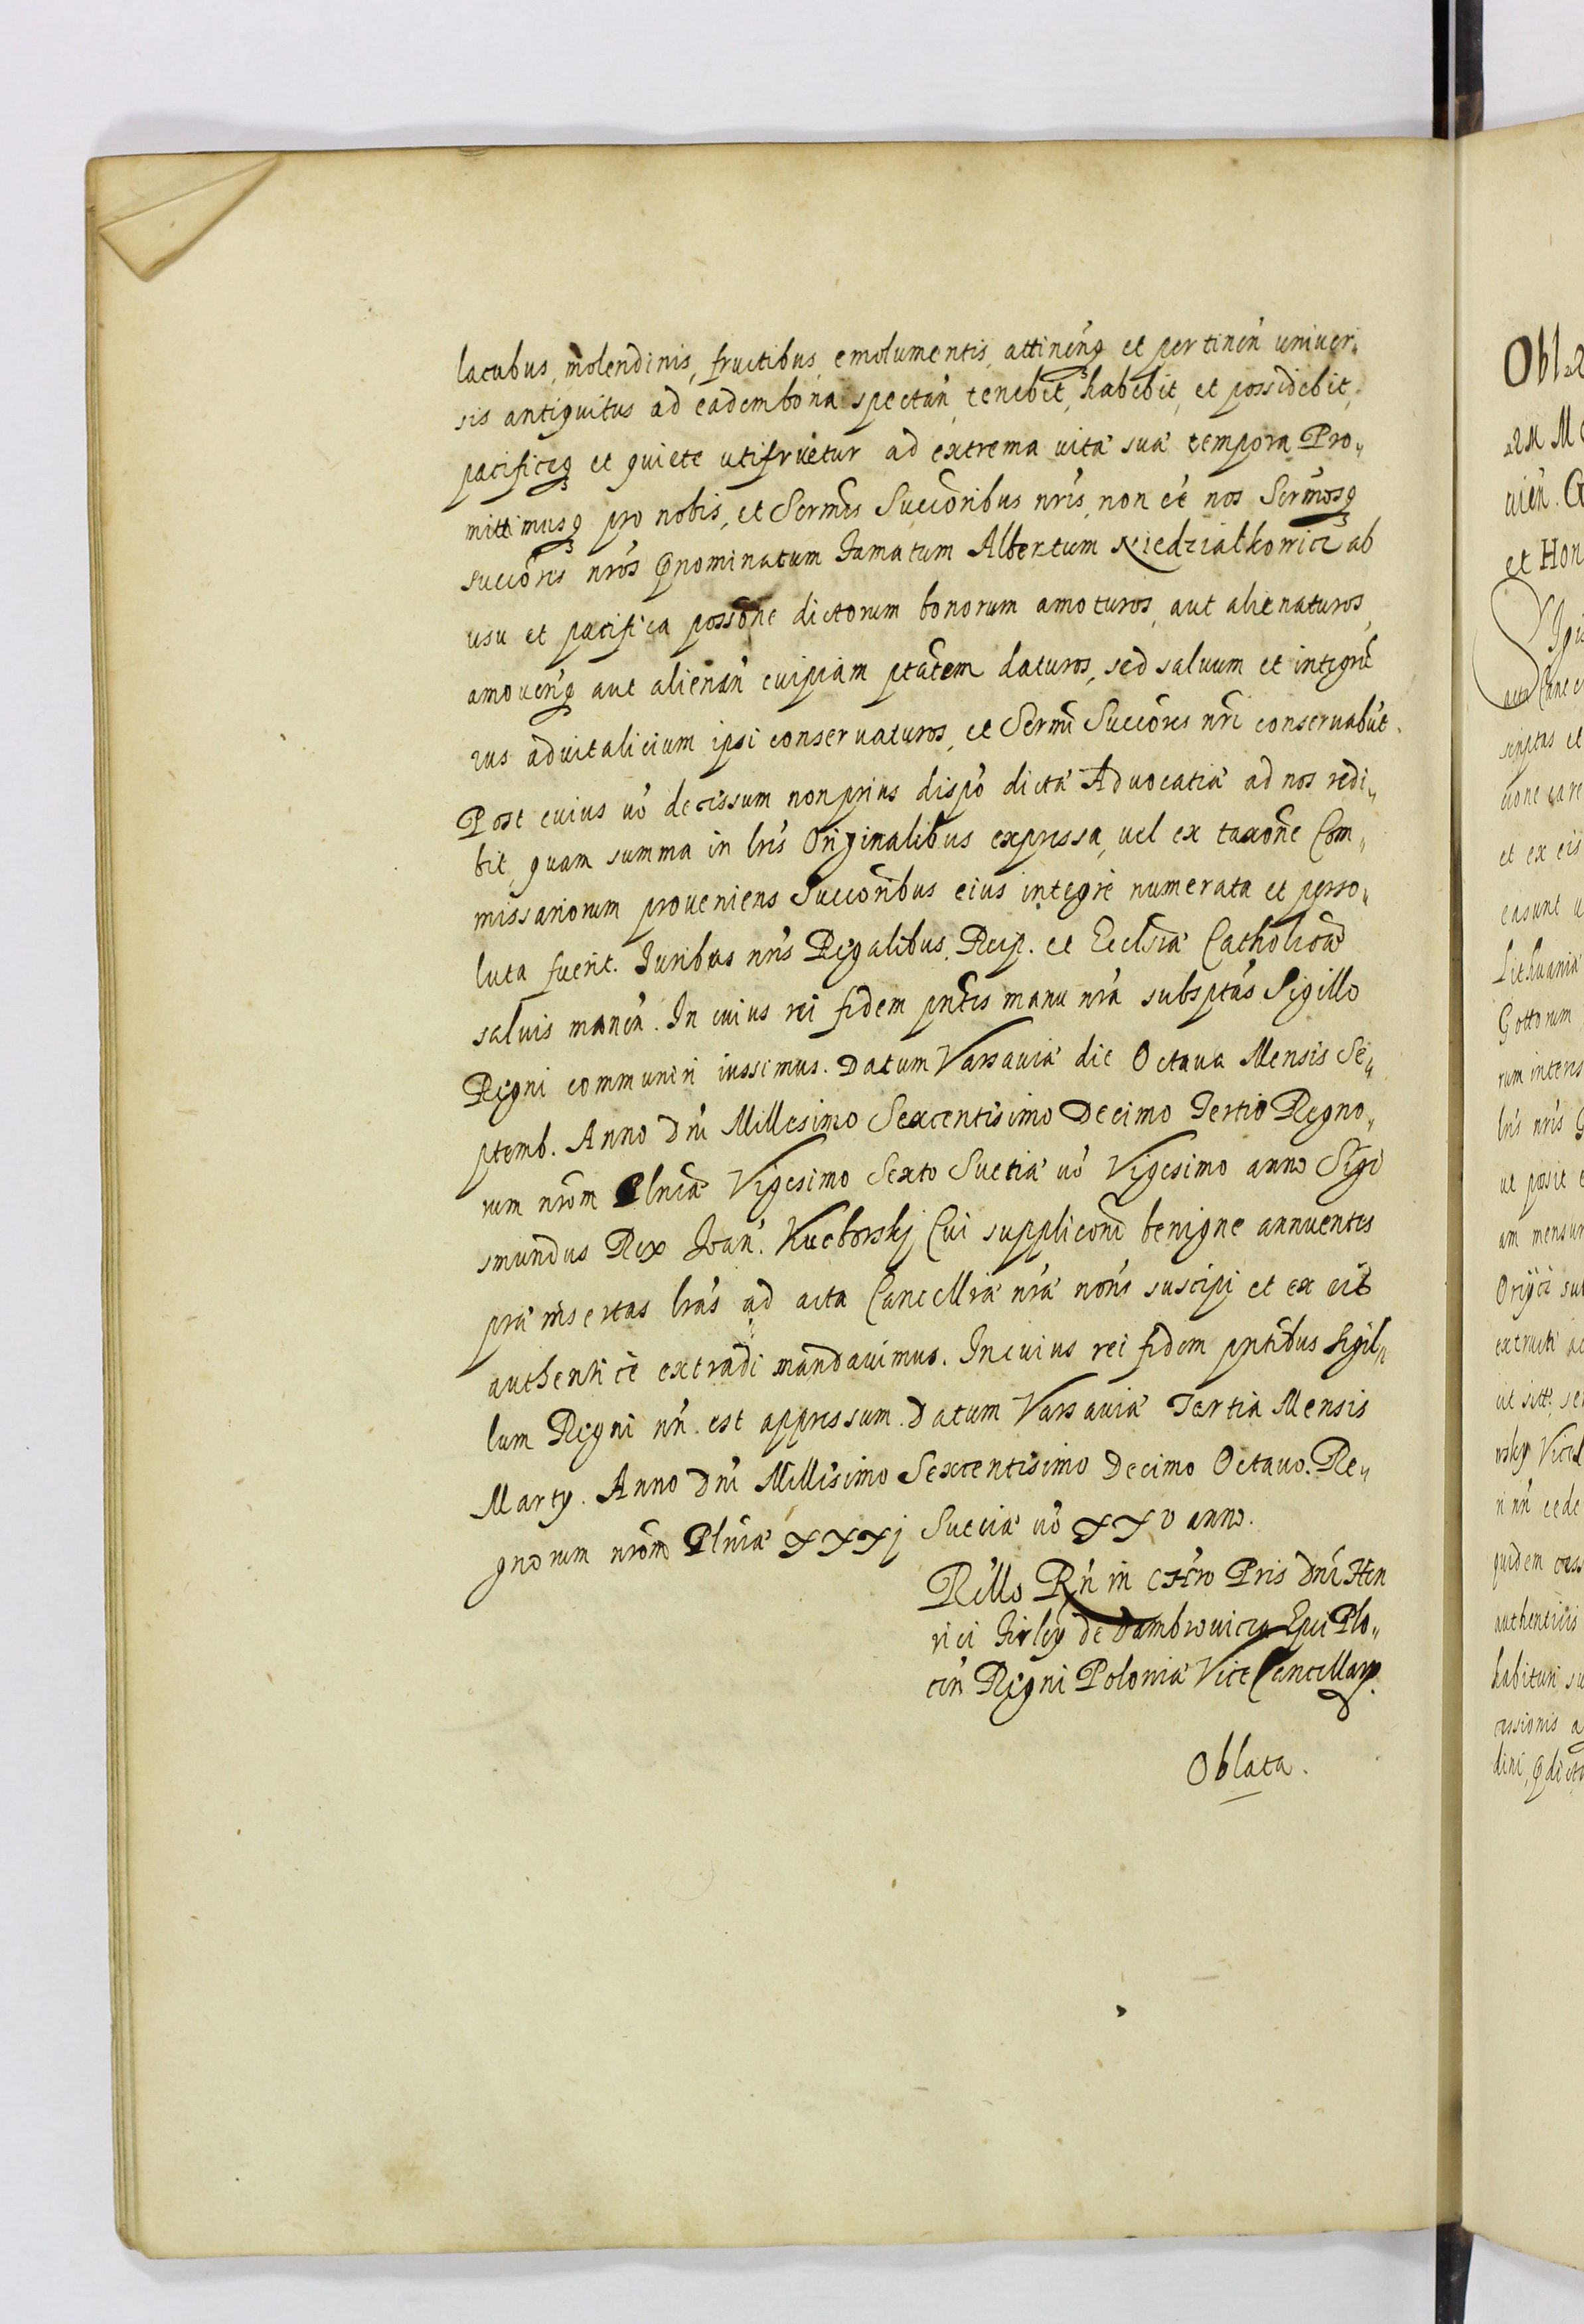 lacubus, molendinis, fructibus, emolumentis, attineñq et pertineñ univer„
sis antiquitus ad eadem bona spectań, tenebit, habebit, et possidebit,
pacificeq et quiete utifruetur ad extrema vitæ suæ tempora. Pro„
mittimusq pro nobis, et Sermis Succoribus nris, non eē nos Sermosq
succores nros prnominatum famatum Albertum Niedziałkowicz ab
usu et pacifica possone dictorum bonorum amoturos, aut alienaturos,
amoveńq aut alienań cuipiam ptatem daturos, sed saluum et integrũ
ius aduitalicium ipsi conseruaturos, et Sermi Succores nri conseruabūt.
Post cuius uō decessum non prius dispō dictæ Advocatiæ ad nos redi„
bit, quam summa in lris Originalibus expressa, uel ex taxone Com„
missariorum proueniens Succoribus eius integrè numerata et perso„
luta fuerit. Iuribus nris Regalibus, Reip. et Ecclsiæ Catholicæ
saluis maneñ. In cuius rei fidem pntes manu nra subsptas Sigillo
Regni communiri iussimus. Datum Varsauiæ die Octaua Mensis Se„
ptemb. Anno Dni Millesimo Sexcentesimo Decimo Tertio Regno„
rum nrom Plniæ Vigesimo Sexto Suetiæ uō Vigesimo anno Sigi
smundus Rex Ioań. Kuchorskj Cui suppliconi benigne annuentes
præinsertas lras ad acta Cancellriæ nræ nons suscipi et ex eis
authenticè extradi mandauimus. In cuius rei fidem pntibus sigil„
lum Regni nrī est appressum. Datum Varsauiæ Tertia Mensis
Marty. Anno Dni Millesimo Sexcentesimo Decimo Octauo. Re„
gnorum nrom Plniæ XXXj Sueciæ uō XXV anno.
Rello Rń in Chro Pris Dni Hen
rici Firley de Dambrowicza Epi Plo„
ceń Regni Poloniæ Vice Cancellary.
Oblata.